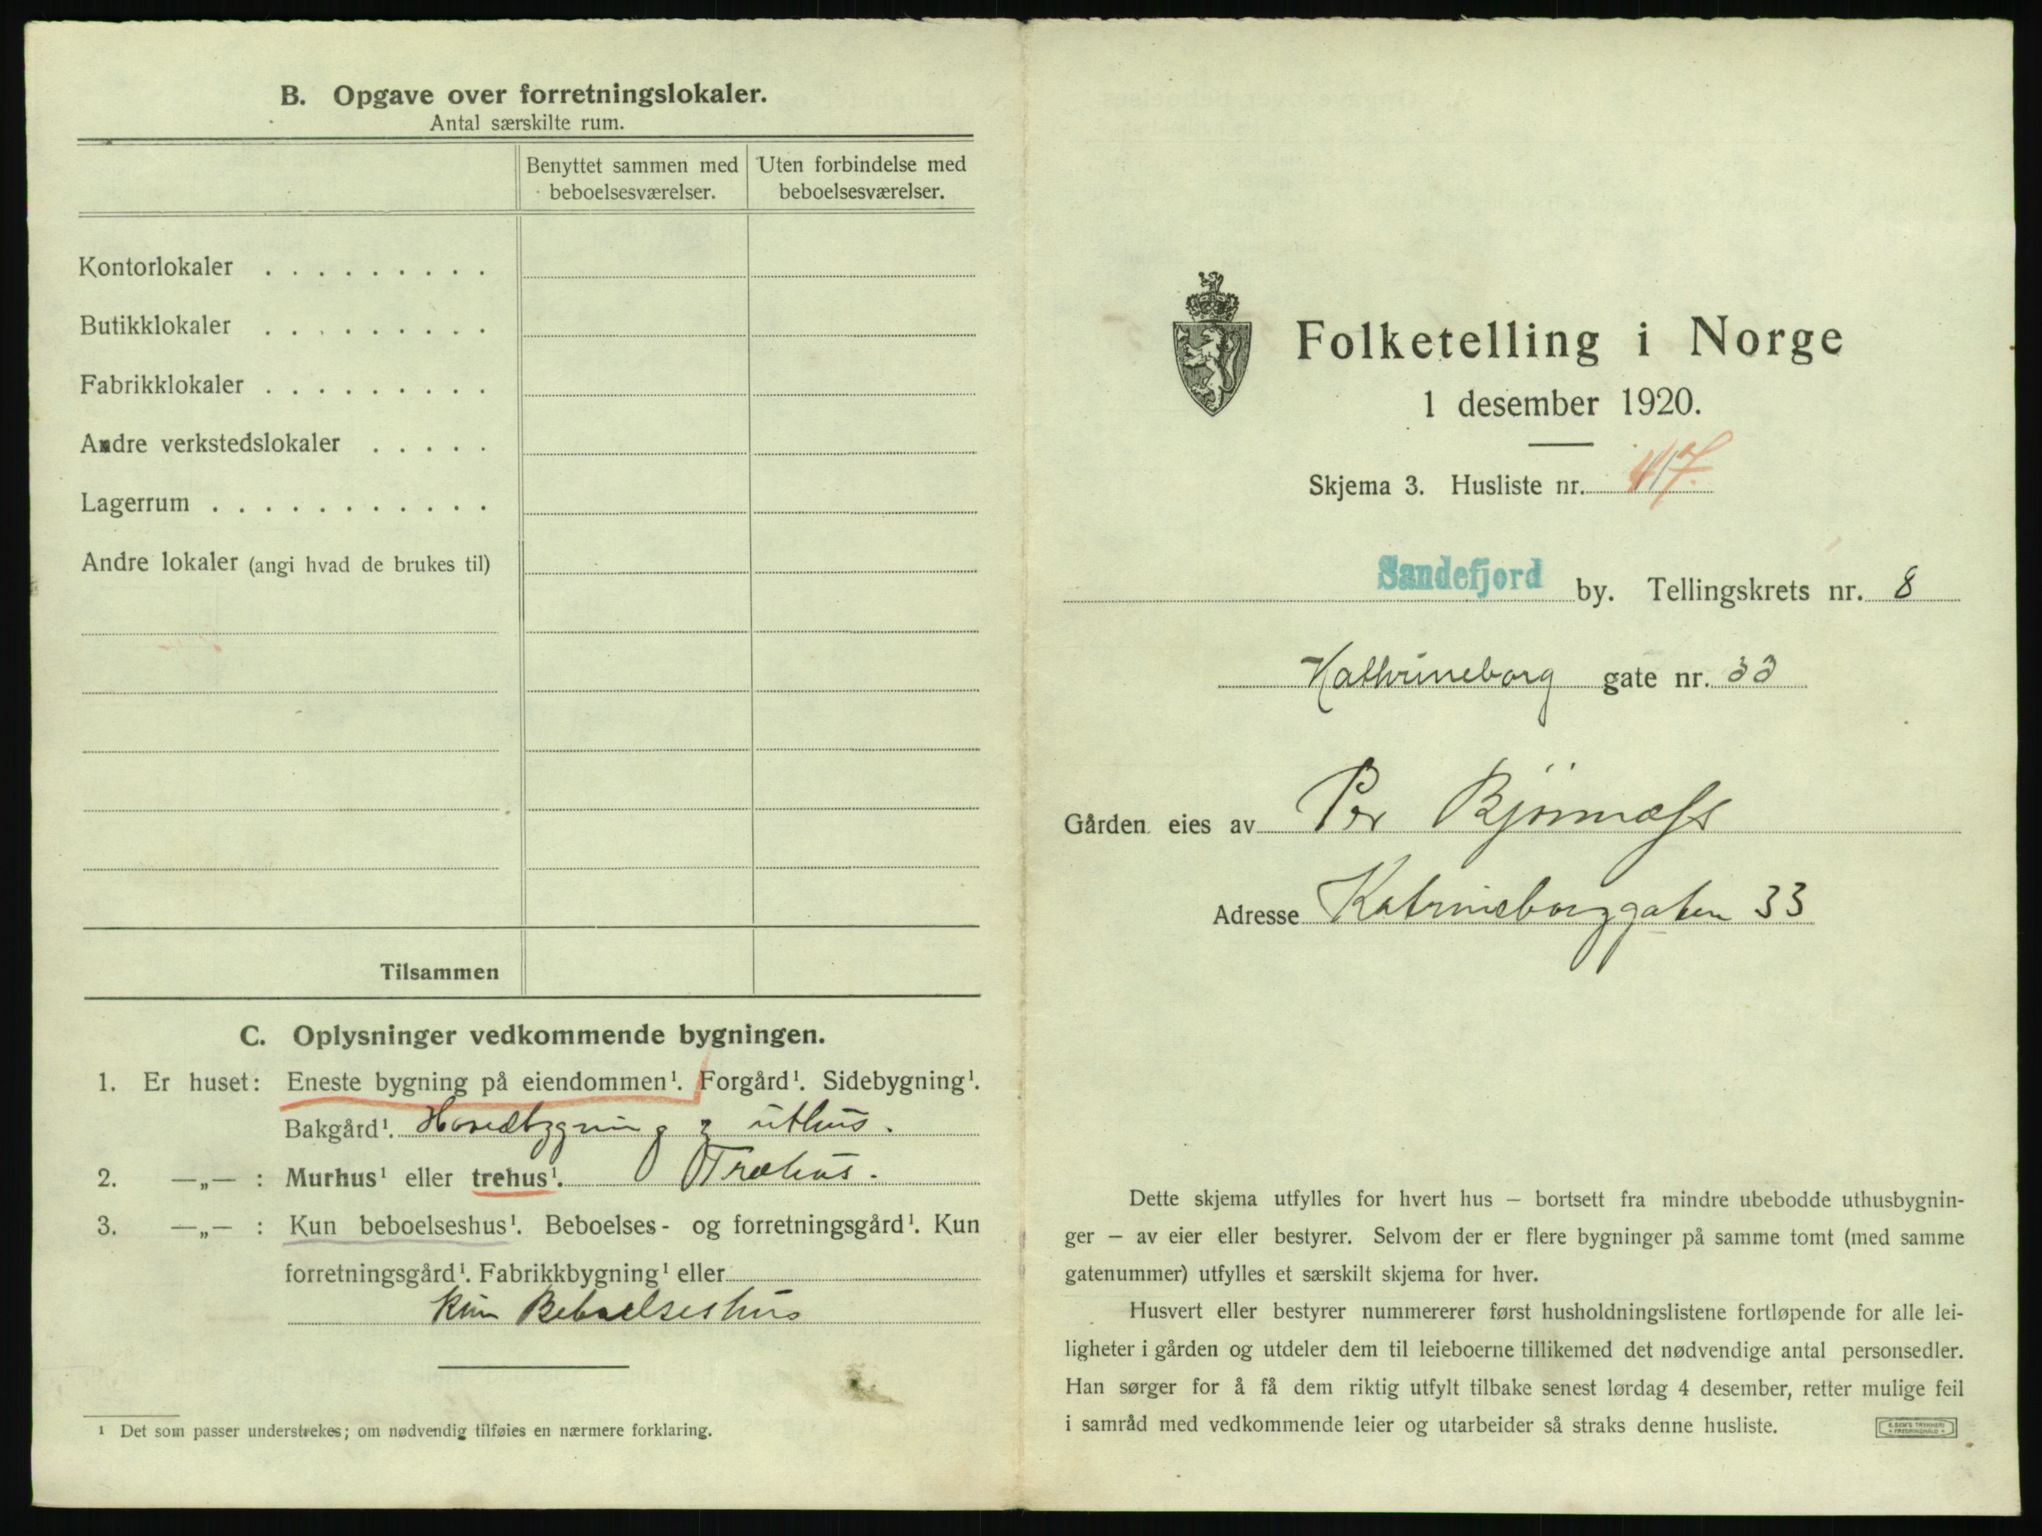 B. Opgave over forretningslokaler.
Antal særskilte rum.
Benyttet sammen med beboelsesværelser.
Uten forbindelse med beboelsesværelser.
Kontorlokaler . . . . . . . . .
Butikklokaler . . . . . . . . .
Fabrikklokaler . . . . . . . . .
Andre verkstedslokaler . . . . .
Lagerrum . . . . . . . . . . .
Andre lokaler (angi hvad de brukes til)
Tilsammen
C. Oplysninger vedkommende bygningen.
1. Er huset: Eneste bygning på eiendommen¹. Forgård¹. Sidebygning¹.
Bakgård¹. Hovedbygning og uthus.
2. —„— : Murhus¹ eller trehus¹. Træhus.
3. —„— : Kun beboelseshus¹. Beboelses- og forretningsgård¹. Kun
forretningsgård¹. Fabrikkbygning¹ eller
Kun Beboelseshus
¹ Det som passer understrekes; om nødvendig tilføies en nærmere forklaring.
Folketelling i Norge
1 desember 1920.
Skjema 3. Husliste nr. 117.
Sandefjord by. Tellingskrets nr. 8
Kathrineborg gate nr. 33
Gården eies av Per Bjørnnæss
Adresse Katrineborggaten 33
Dette skjema utfylles for hvert hus – bortsett fra mindre ubebodde uthusbygnin-
ger – av eier eller bestyrer. Selvom der er flere bygninger på samme tomt (med samme
gatenummer) utfylles et særskilt skjema for hver.
Husvert eller bestyrer nummererer først husholdningslistene fortløpende for alle lei-
ligheter i gården og utdeler dem til leieboerne tillikemed det nødvendige antal personsedler.
Han sørger for å få dem riktig utfylt tilbake senest lørdag 4 desember, retter mulige feil
i samråd med vedkommende leier og utarbeider så straks denne husliste.